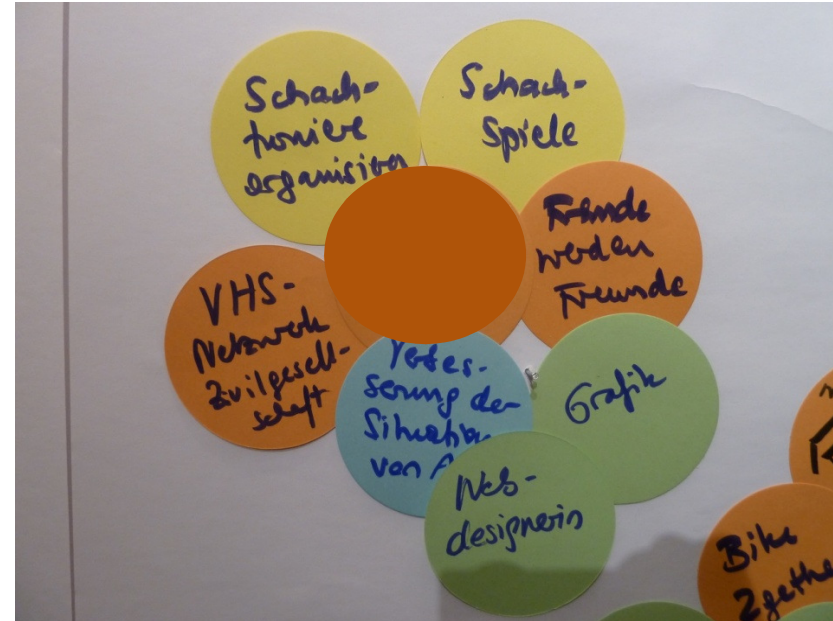 Schach-
turniere
organisieren
Schach-
Spiele
Fremde
werden
Freunde
VHS-
Netzwerk
Zivilgesell-
schaft
Verbes-
serung der
Situation
von
Grafik
Web-
designerin
Bike
2gethe